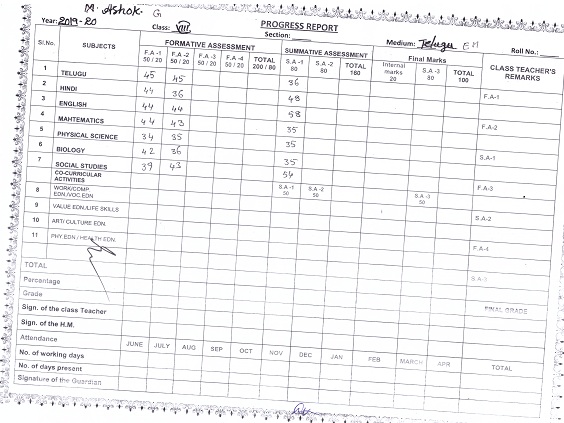 M. Ashok. G
PROGRESS REPORT
Year: 2019-20 Class: VIII Section: Medium: Telugu EM Roll No.:
Sl.No. SUBJECTS FORMATIVE ASSESSMENT SUMMATIVE ASSESSMENT Final Marks CLASS TEACHER'S REMARKS
F.A -1 50 / 20 F.A -2 50 / 20 F.A -3 50 / 20 F.A -4 50 / 20 TOTAL 200 / 80 S.A -1 80 S.A -2 80 TOTAL 160 Internal marks 20 S.A -3 80 TOTAL 100
1 TELUGU 45 45 36
F.A-1
2 HINDI 44 36 48
3 ENGLISH 44 44 58
F.A-2
4 MAHTEMATICS 44 43 35
5 PHYSICAL SCIENCE 34 35 35
S.A-1
6 BIOLOGY 42 36 35
7 SOCIAL STUDIES 39 43 54
F.A-3
CO-CURRICULAR ACTIVITIES
8 WORK/COMP. EDN./VOC.EDN S.A -1 50 S.A -2 50 S.A -3 50
9 VALUE EDN./LIFE SKILLS
S.A-2
10 ART/ CULTURE EDN.
11 PHY.EDN / HEALTH EDN.
F.A-4
TOTAL
Percentage
Grade
FINAL GRADE
Sign. of the class Teacher
Sign. of the H.M.
Attendance JUNE JULY AUG SEP OCT NOV DEC JAN FEB MARCH APR TOTAL
No. of working days
No. of days present
Signature of the Guardian